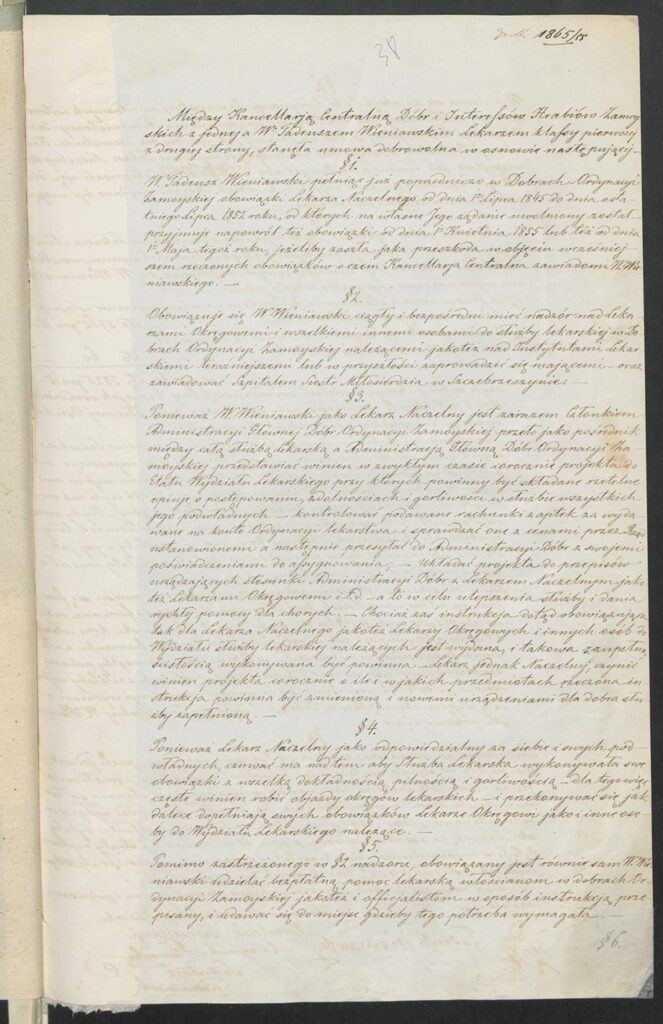 do N. 1865/55
38
Między Kancellarją Centralną Dóbr i Interessów Hrabiów Zamoy-
skich z jednej a Wm Tadeuszem Wieniawskim Lekarzem klassy pierwszej
z drugiej strony, stanęła umowa dobrowolna w osnowie następującej.
§1.
W. Tadeusz Wieniawski pełniąc już poprzedniczo w Dobrach Ordynacyi
Zamoyskiej obowiązki Lekarza Naczelnego od dnia 1go Lipca 1845 do dnia osta-
tniego Lipca 1852 roku, od których na własne Jego żądanie uwolniony został
przyjmuje napowrót też obowiązki od dnia 1go Kwietnia 1855 lub też od dnia
1go Maja tegoż roku, jeżeliby zaszła jaka przeszkoda w objęciu wcześniej-
szem rzeczonych obowiązków o czem Kancellarja Centralna zawiadomi W. Wie-
niawskiego. —
§2.
Obowiązuje się W. Wieniawski ciągły i bezpośredni mieć nadzór nad Leka-
rzami Okręgowemi i wszelkiemi innemi osobami do służby lekarskiej w Do-
brach Ordynacyi Zamoyskiej należącemi jakoteż nad Instytutami Lekar-
skiemi teraźniejszemi lub w przyszłości zaprowadzić się mającemi — oraz
zawiadować Szpitalem Siostr Miłosierdzia w Szczebrzeszynie. —
§3.
Ponieważ W. Wieniawski jako Lekarz Naczelny jest zarazem Członkiem
Administracyi Głównej Dóbr Ordynacyi Zamoyskiej przeto jako pośrednik
między całą służbą Lekarską a Administracją Główną Dóbr Ordynacyi Za-
moyskiej przedstawiać winien w zwykłym czasie corocznie projekta do
Etatu Wydziału Lekarskiego przy których powinny być składane rzetelne
opinje o postępowaniu, zdolnościach i gorliwości w służbie wszystkich
jego podwładnych — kontrolować podawane rachunki z aptek za wyda-
wane na konto Ordynacyi lekarstwa i sprawdzać one z cenami przez Rząd
ustanowionemi a następnie przesyłać do Administracyi Dóbr z swojemi
poświadczeniami do assygnowania; — Układać projekta do przepisów
urządzających stosunki Administracyi Dóbr z Lekarzem Naczelnym jako
też Lekarzami Okręgowemi i t.d. — a to w celu ulepszenia służby i dania
rychłej pomocy dla chorych. — Chociaż zaś instrukcja dotąd obowiązująca
tak dla Lekarza Naczelnego jakoteż Lekarzy Okręgowych i innych osób do
Wydziału służby lekarskiej należących jest wydaną, i takowa z zupełną
ścisłością wykonywana być powinna — Lekarz jednak Naczelny, czynić
winien projekta corocznie o ile i w jakich przedmiotach rzeczona in-
strukcja powinna być zmienioną i nowemi urządzeniami dla dobra słu-
żby zapełnioną. —
§4.
Ponieważ Lekarz Naczelny jako odpowiedzialny za siebie i swych pod-
władnych, czuwać ma nad tem aby Służba Lekarska wykonywała swe
obowiązki z wszelką dokładnością pilnością i gorliwością — dla tego więc
częste winien robić objazdy okręgów lekarskich — i przekonywać się jak
dalece dopełniają swych obowiązków Lekarze Okręgowi jako i inne oso-
by do Wydziału Lekarskiego należące. —
§5.
Pomimo zastrzeżonego w §2 nadzoru, obowiązany jest równie sam W. Wie-
niawski udzielać bezpłatną pomoc lekarską włościanom w dobrach Or-
dynacyi Zamoyskiej jakoteż i officjalistom w sposób instrukcją prze-
pisany, i udawać się do miejsc gdzieby tego potrzeba wymagała —
§6.